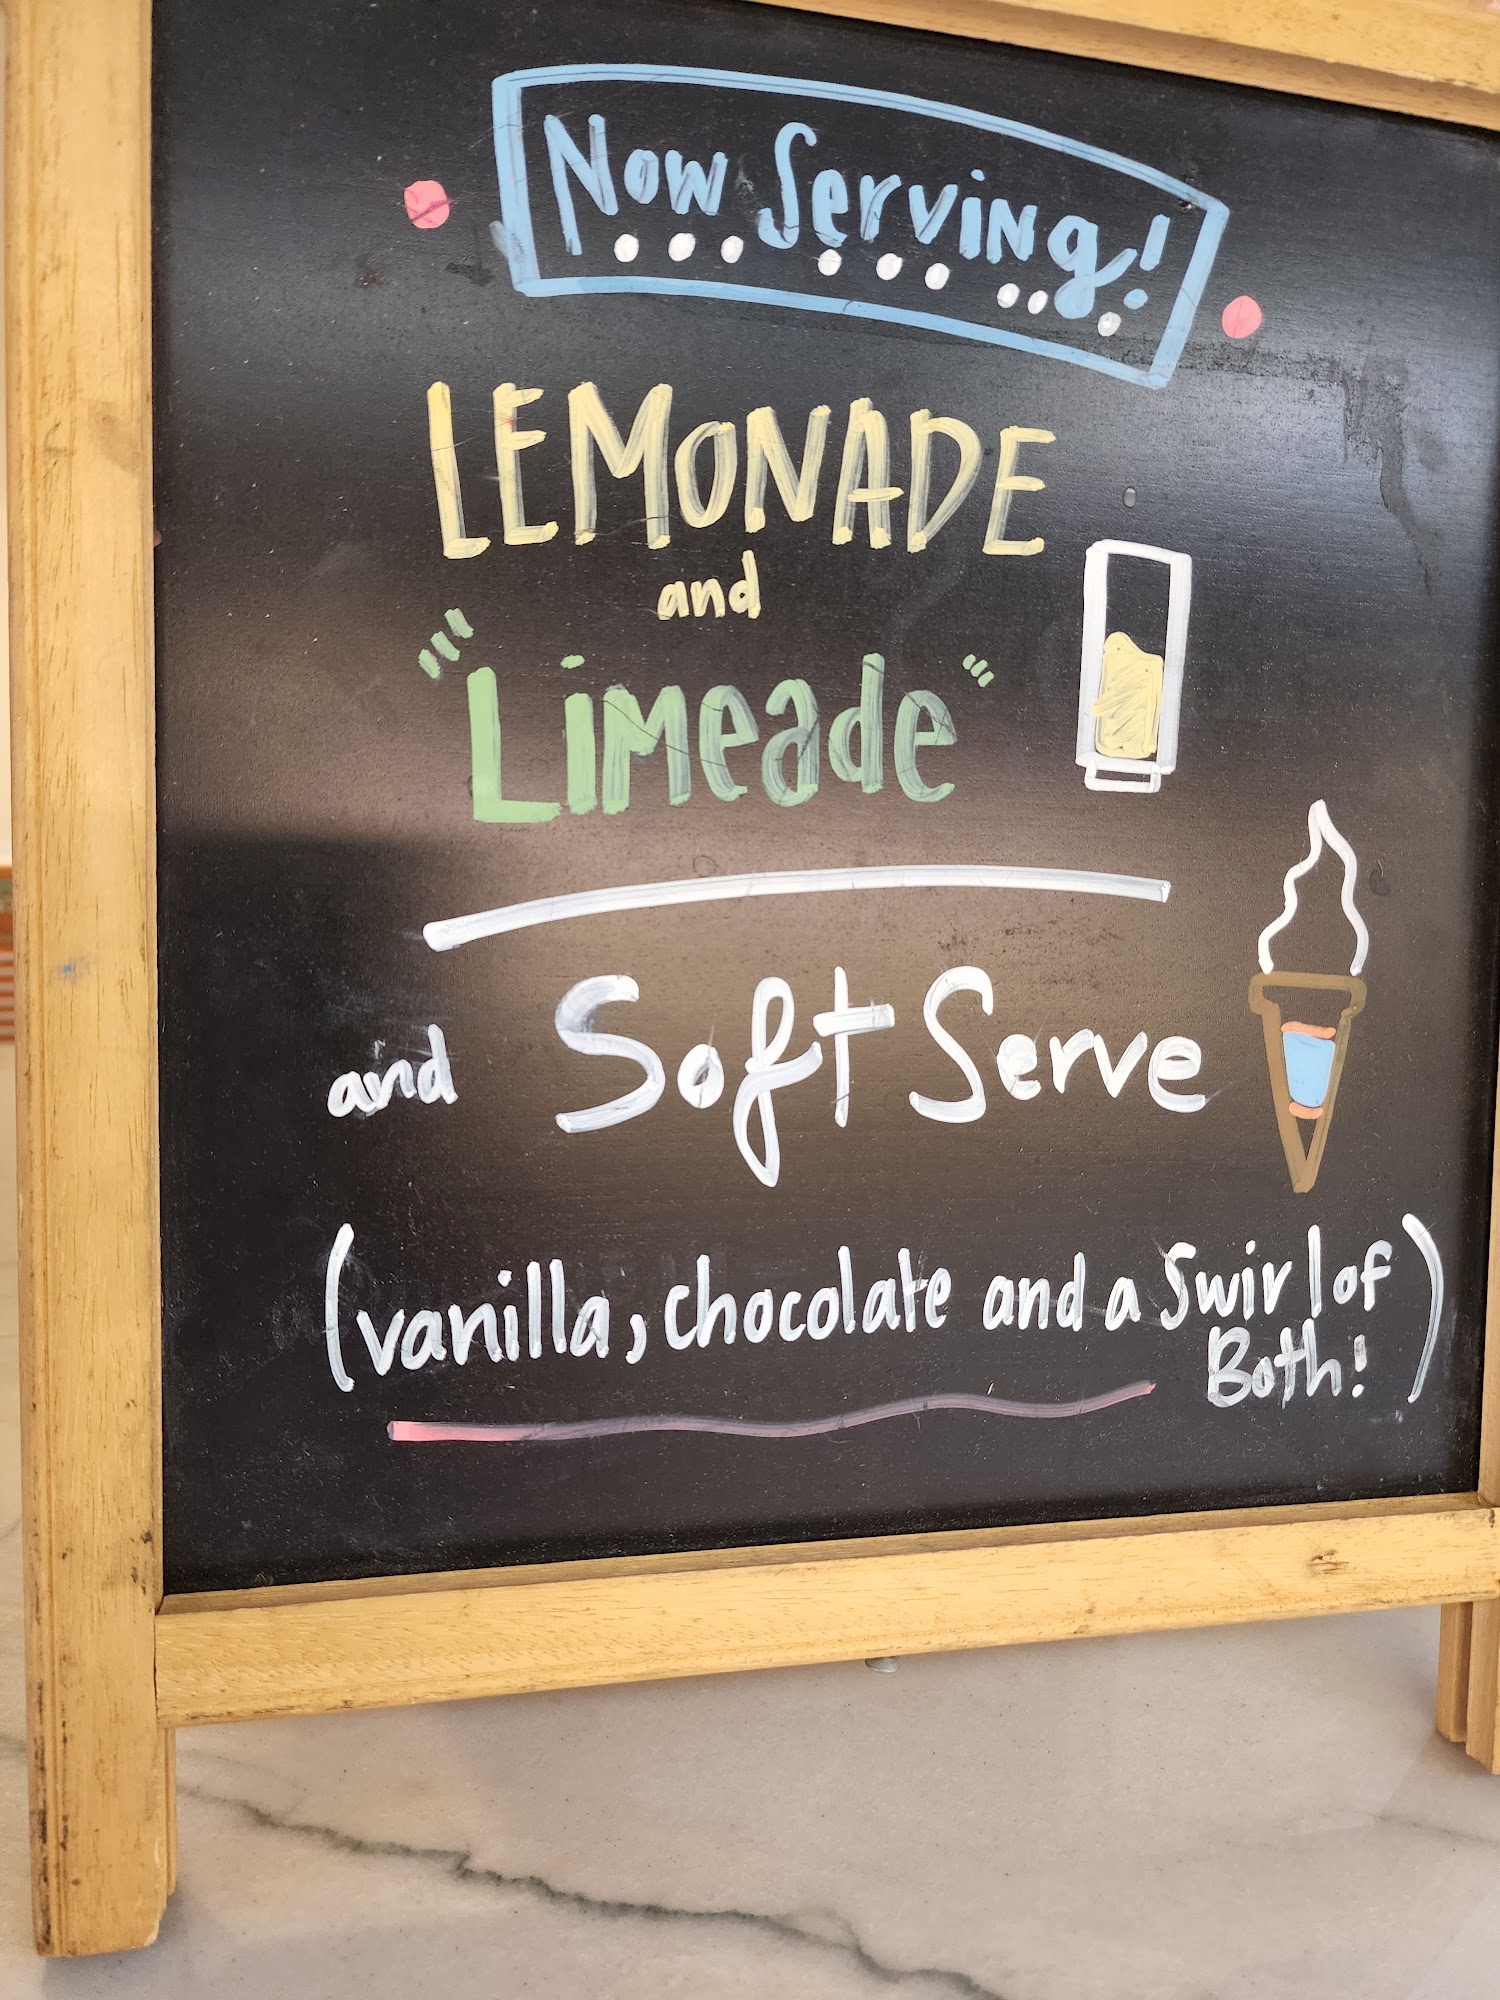 Now Serving!
LEMONADE
and
"Limeade"
and Soft Serve
(vanilla, chocolate and a Swirl of
Both!)